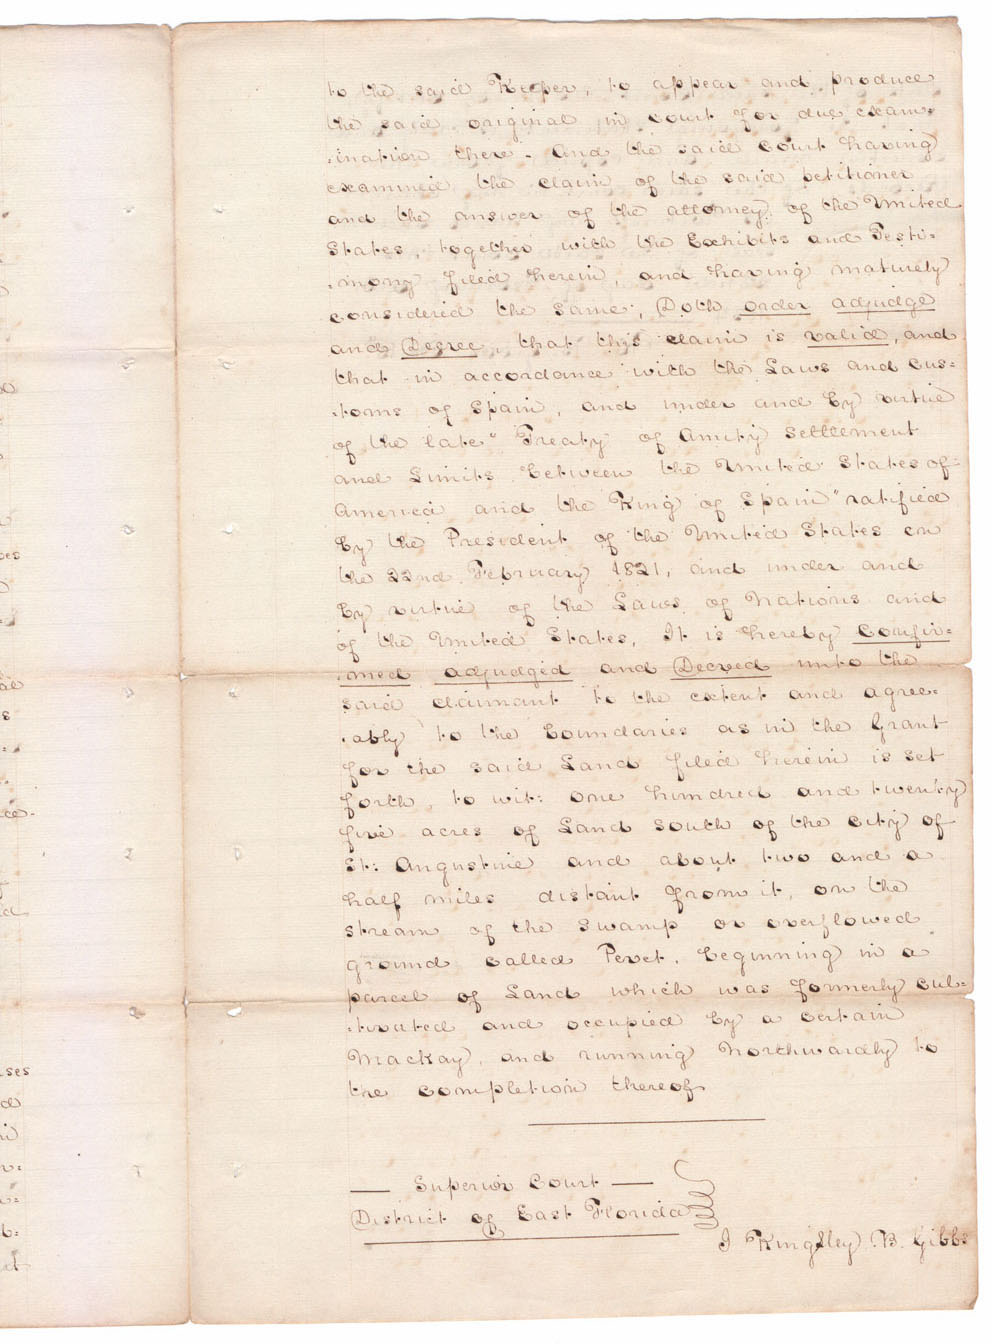 to the said Keeper, to appear and produce
the said original in court for due exam=
=ination there - And the said court having
examined the claim of the said petitioner
and the answer of the attorney of the United
States, together with the Exhibits and Testi=
=mony filed herein, and having maturely
considered the same; Doth order adjudge
and Decree, that this claim is valid, and
that in accordance with the Laws and Cus=
=toms of Spain, and under and by virtue
of the late "Treaty of Amity Settlement
and Limits between the United States of
America and the King of Spain" ratified
by the President of the United States on
the 22nd February 1821, and under and
by virtue of the Laws of Nations and
of the United States, It is hereby Confir=
=med adjudged and Decred unto the
said claimant to the extent and agree=
=ably to the boundaries as in the Grant
for the said Land filed herein is set
forth, to wit: one hundred and twenty
five acres of Land South of the city of
St: Augustine and about two and a
half miles distant from it, on the
stream of the Swamp or overflowed
ground called Pevet, beginning in a
parcel of Land which was formerly cul=
=tivated and occupied by a certain
Mackay, and running Northwardly to
the completion thereof
Superior Court
District of East Florida
I Kingsley B. Gibbs